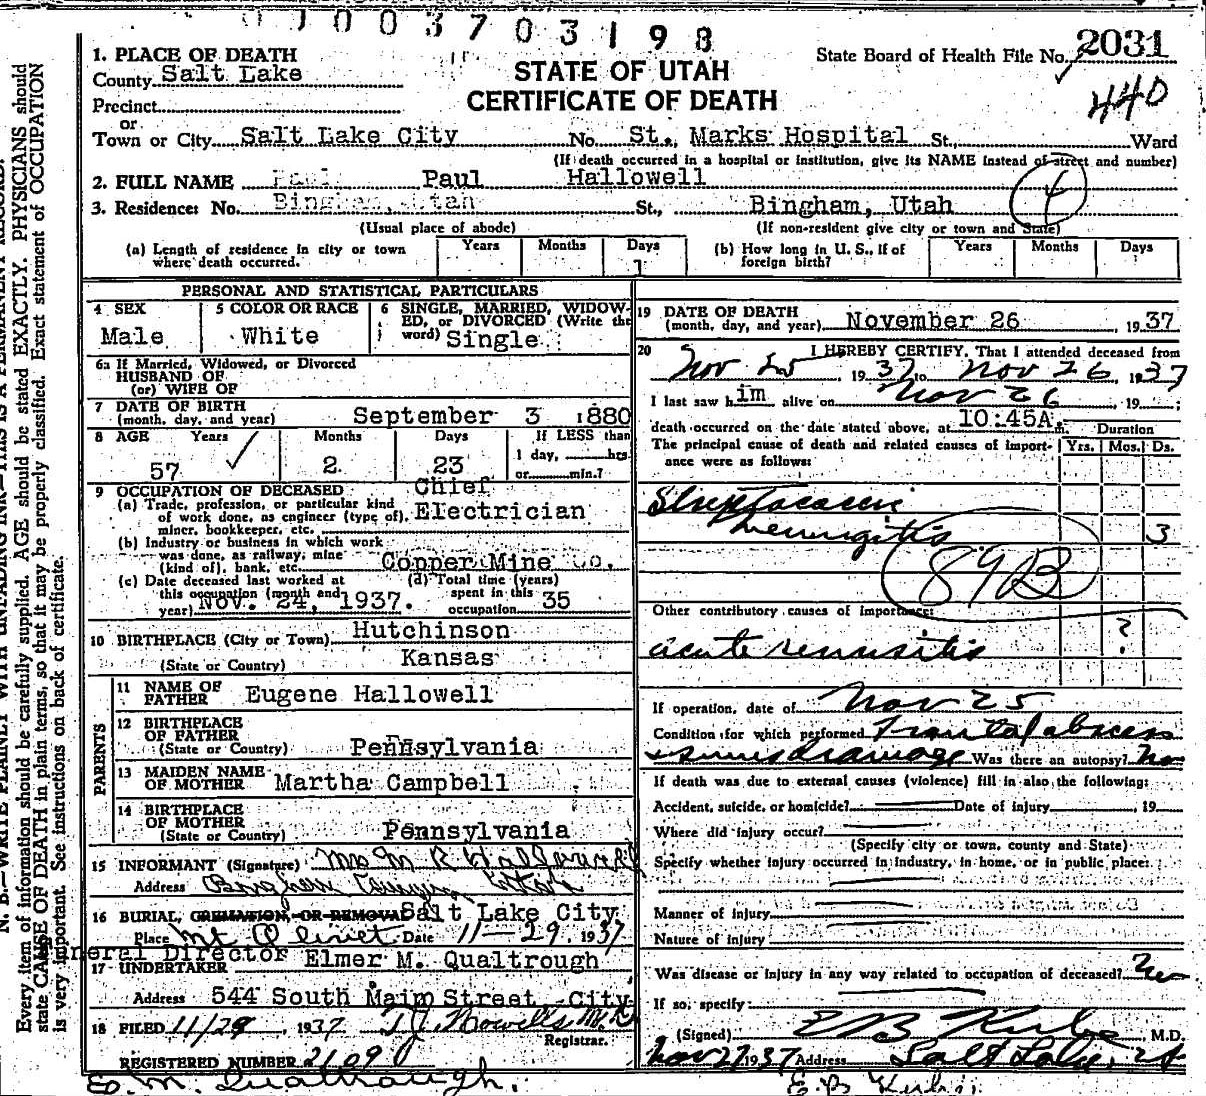 0 1 0 0 3 7 0 3 1 9 8
State Board of Health File No. 2031
440
STATE OF UTAH
CERTIFICATE OF DEATH
1. PLACE OF DEATH
County Salt Lake
Precinct
or
Town or City Salt Lake City No. St. Marks Hospital St., Ward
(If death occurred in a hospital or institution, give its NAME instead of street and number)
2. FULL NAME Paul Hallowell
3. Residence: No. Bingham, Utah St., Bingham, Utah
4
(Usual place of abode) (If non-resident give city or town and State)
(a) Length of residence in city or town where death occurred. Years Months Days 1
(b) How long in U. S., if of foreign birth? Years Months Days
PERSONAL AND STATISTICAL PARTICULARS
4 SEX Male
5 COLOR OR RACE White
6 SINGLE, MARRIED, WIDOWED, or DIVORCED (Write the word) Single
6a If Married, Widowed, or Divorced
HUSBAND OF
(or) WIFE OF
7 DATE OF BIRTH
(month, day, and year) September 3 1880
8 AGE Years 57 Months 2 Days 23 If LESS than 1 day, hrs. or min.?
9 OCCUPATION OF DECEASED
(a) Trade, profession, or particular kind of work done, as engineer (type of), miner, bookkeeper, etc. Chief Electrician
(b) Industry or business in which work was done, as railway, mine (kind of), bank, etc. Copper Mine Co.
(c) Date deceased last worked at this occupation (month and year) Nov. 24, 1937.
(d) Total time (years) spent in this occupation 35
10 BIRTHPLACE (City or Town) Hutchinson
(State or Country) Kansas
PARENTS
11 NAME OF FATHER Eugene Hallowell
12 BIRTHPLACE OF FATHER
(State or Country) Pennsylvania
13 MAIDEN NAME OF MOTHER Martha Campbell
14 BIRTHPLACE OF MOTHER
(State or Country) Pennsylvania
15 INFORMANT (Signature) Mrs M R Hallowell
Address Bingham Canyon Utah
16 BURIAL, CREMATION, OR REMOVAL Salt Lake City
Place Mt Olivet Date 11-29, 1937
neral Director
17 UNDERTAKER Elmer M. Qualtrough
Address 544 South Maim Street, City
18 FILED 11/29, 1937 T.J. Howells M.D.
Registrar.
REGISTERED NUMBER 2109
E. M. Qualtrough.
19 DATE OF DEATH
(month, day, and year) November 26, 1937
20 I HEREBY CERTIFY, That I attended deceased from
Nov 25, 1937 to Nov 26, 1937
I last saw him alive on Nov 26, 19 ;
death occurred on the date stated above, at 10:45A. m. Duration
The principal cause of death and related causes of importance were as follows: Yrs. Mos. Ds.
Streptococcic
meningitis 3
89B
Other contributory causes of importance:
acute sinusitis ?
If operation, date of Nov 25
Condition for which performed Frontal abscess
+ sinus drainage Was there an autopsy? No
If death was due to external causes (violence) fill in also the following:
Accident, suicide, or homicide? Date of injury , 19
Where did injury occur?
(Specify city or town, county and State)
Specify whether injury occurred in industry, in home, or in public place:
Manner of injury
Nature of injury
Was disease or injury in any way related to occupation of deceased? No
If so, specify:
(Signed) , M.D.
Nov 27 1937 Address Salt Lake, Ut
N. B.—WRITE PLAINLY WITH UNFADING INK—THIS IS A PERMANENT RECORD.
Every item of information should be carefully supplied. AGE should be stated EXACTLY. PHYSICIANS should
state CAUSE OF DEATH in plain terms, so that it may be properly classified. Exact statement of OCCUPATION
is very important. See instructions on back of certificate.